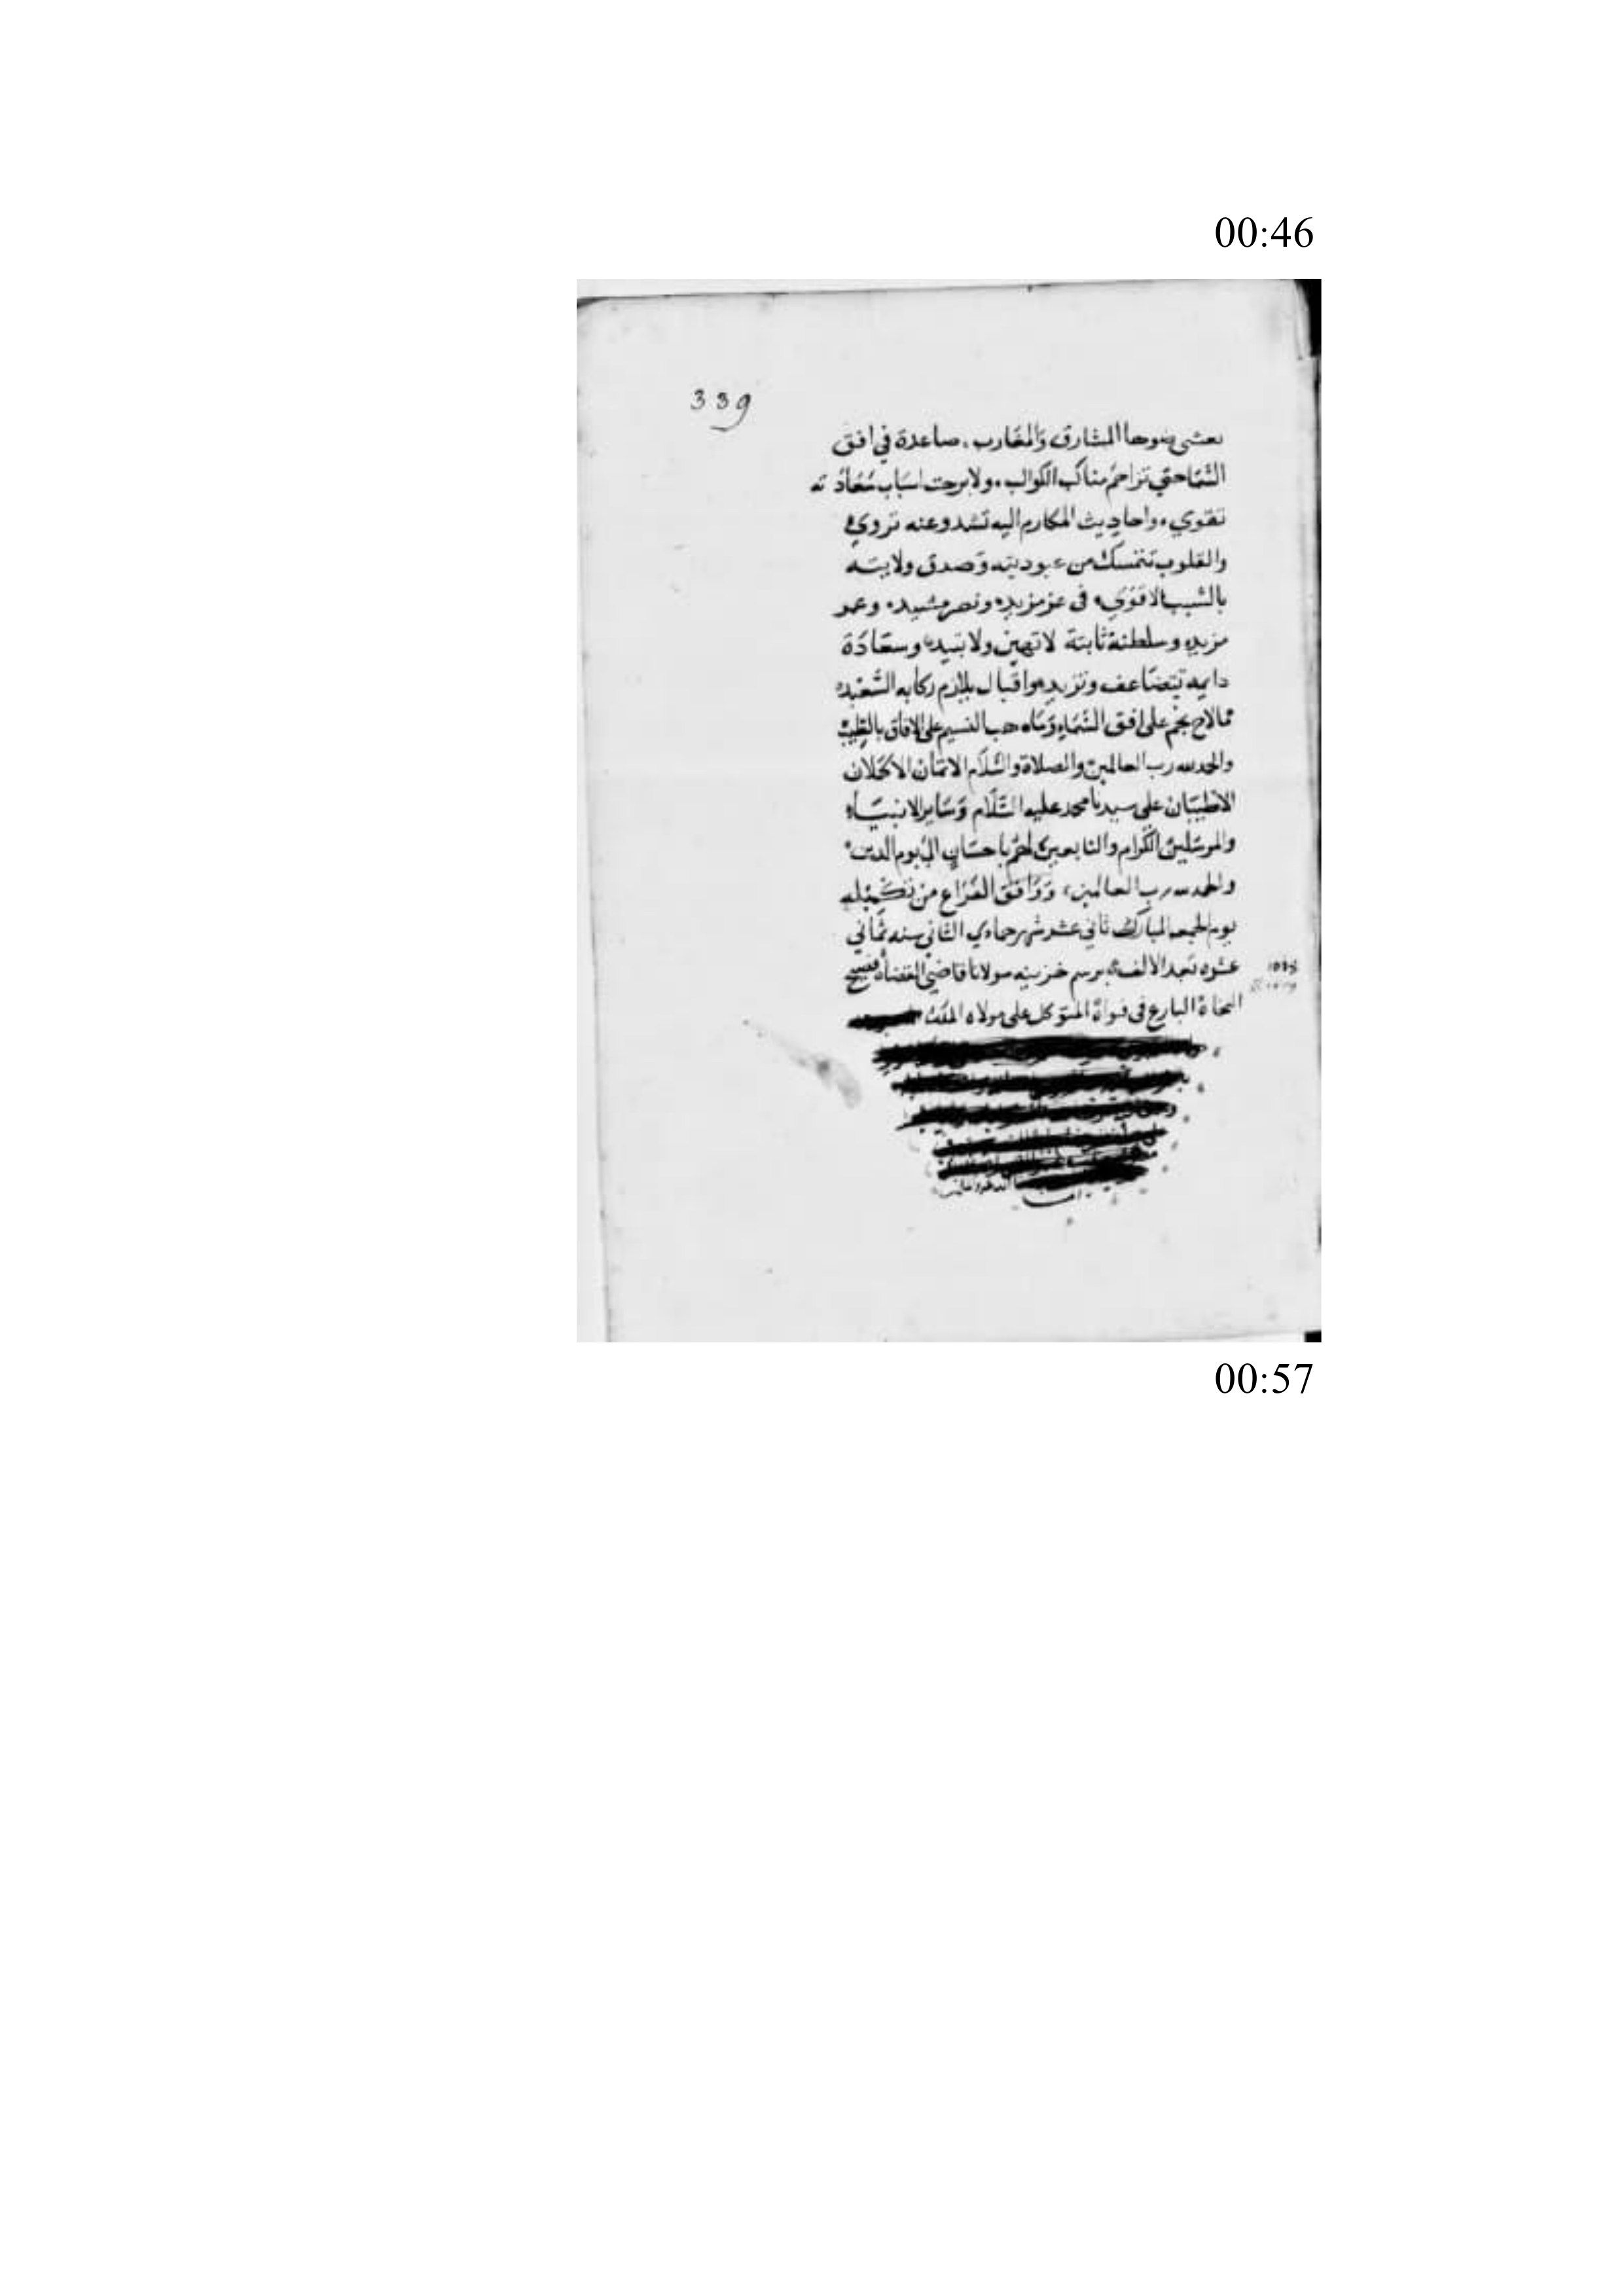 00:46
339
يعشى ضوءها المشارق والمغارب، صاعدة في افق
السَّمَا حتى تزاحمُ مناكب الكواكب، ولا برحت اسبَاب سَعَادَته
تقوي، واحاديث المكارم اليه تسند وعنه تروي،
والقلوب تتمسك من عبوديته وَصدق ولايته
بالسَّبب الاقوَي، فى عز مزيد، ونصر مشيد، وعمر
مزيد، وسلطنة ثابتة لا تهين ولا تبيد، وسعَادَة
دايمه تتضَاعف وتزيد، واقبال يلازم ركابه السَّعيد،
مَا لاح نجم على افق السَّمَاء، وَمَا هب النسيم على الافاق بالطيب
والحمد لله رب العالمين، والصلاة والسَّلَام الاتمَّان الاكمَلان
الاطيبَان على سيدنا محمد عليه السَّلَام وَسَاير الانبيَاء
والمرسَلين الكرام والتابعين لهُم باحسَانٍ الي يوم الدين
والحمد لله رب العالمين، وَوَافقَ الفرَاغ من تكميله
يوم الجمعه المبارك ثاني عشر شهر جمادي الثاني سنه ثمَاني
عشره بَعد الالف، برسم خزينه مولانا قاضي القضاة فصيح
النحاة البارع فى فتواهُ المتوَكل على مولاه الملك
00:57